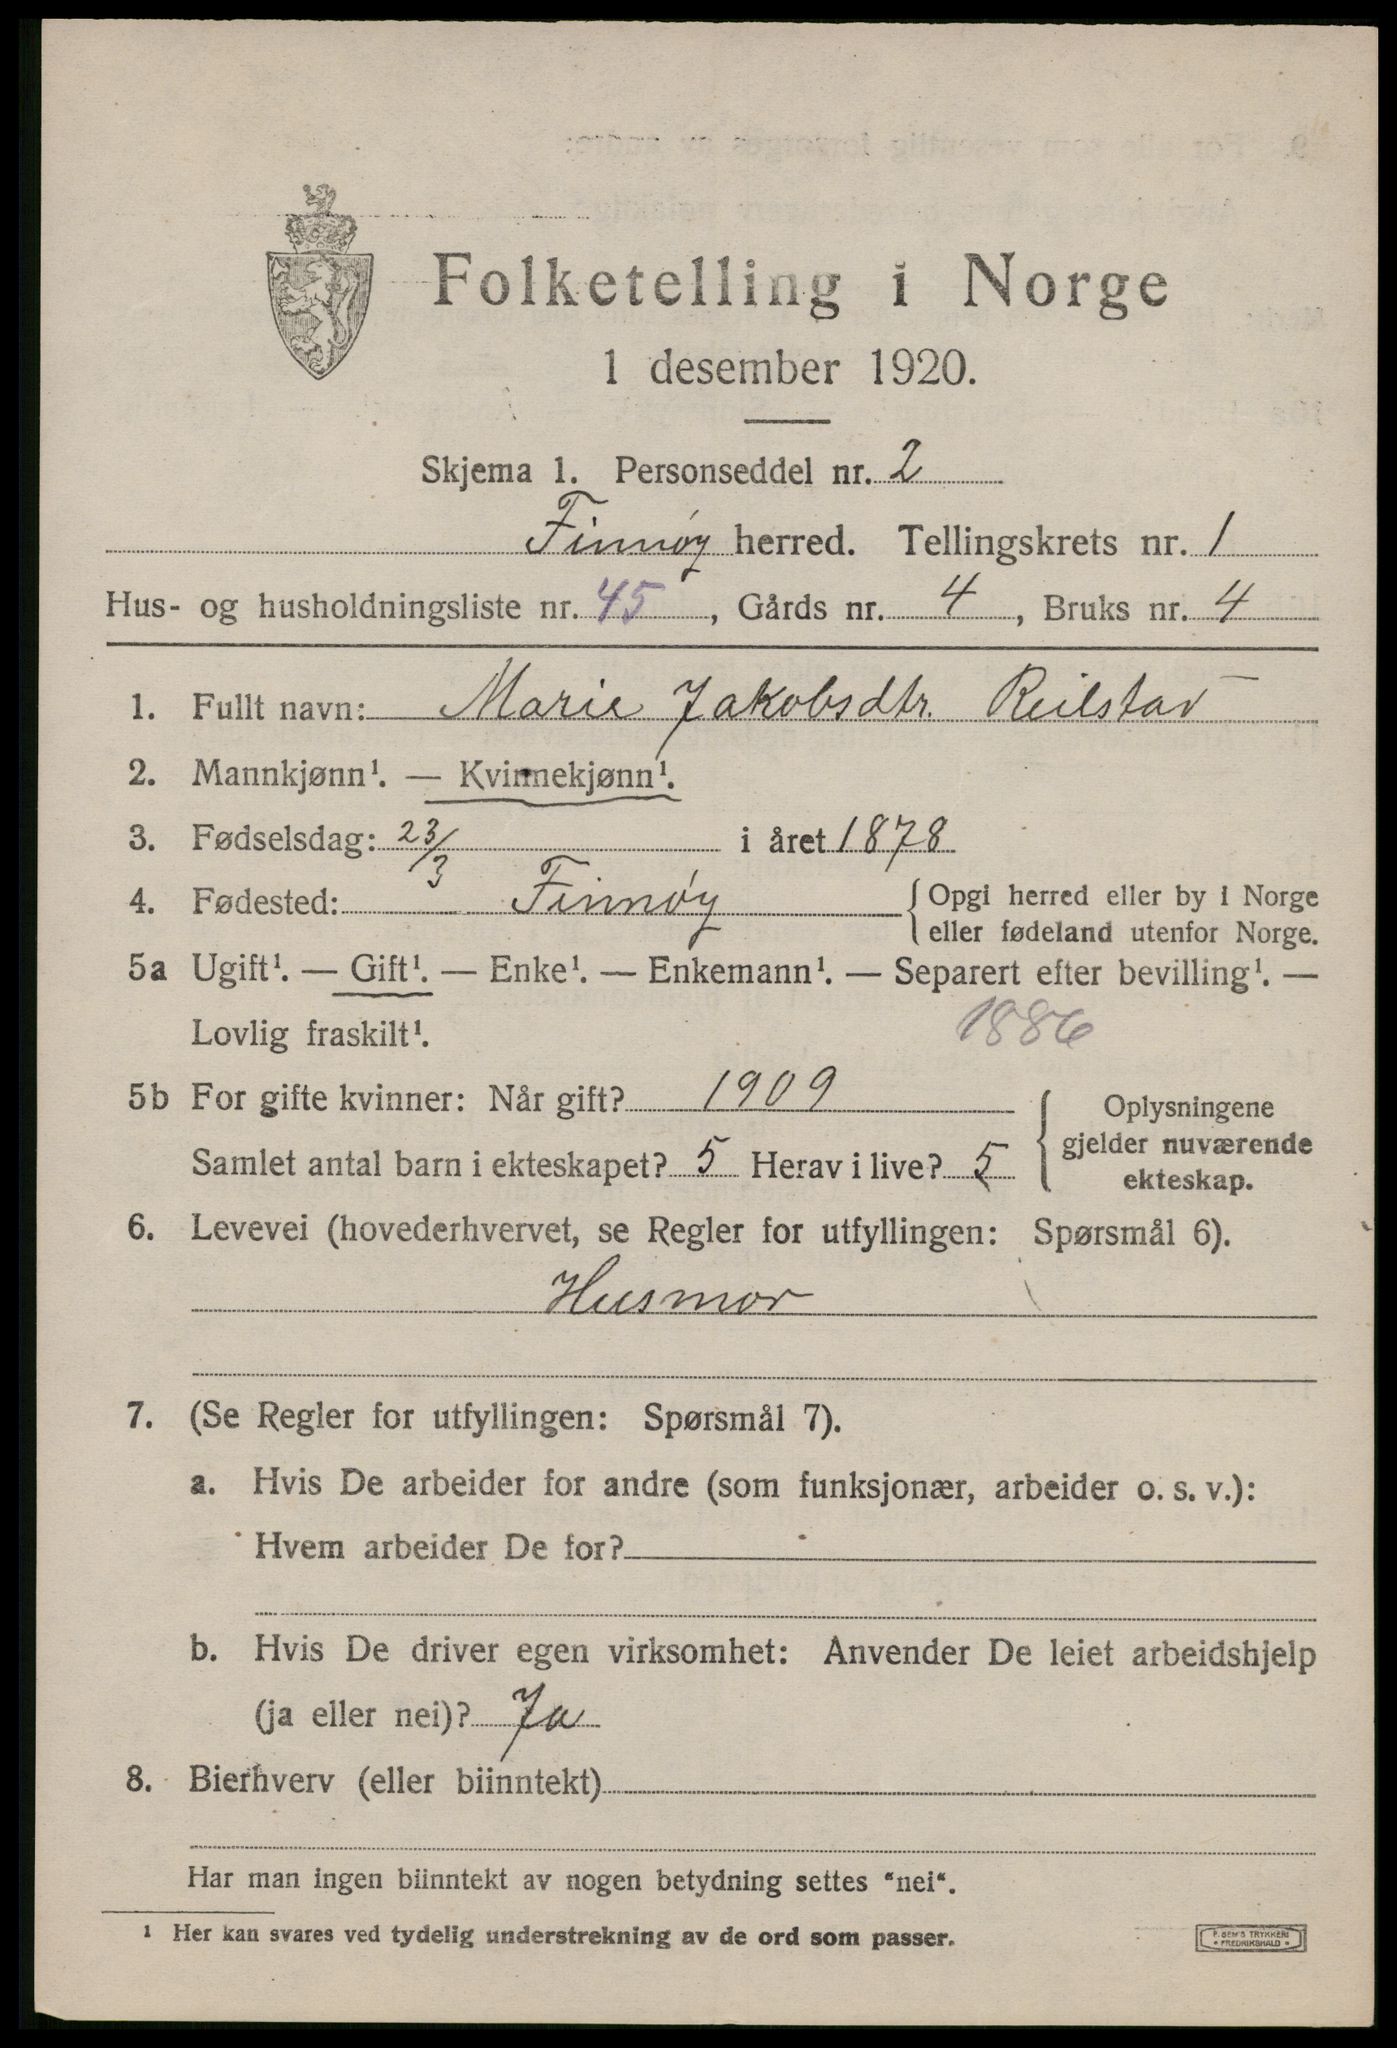 Folketelling i Norge
1 desember 1920.
Skjema 1. Personseddel nr. 2
Finnøy herred. Tellingskrets nr. 1
Hus- og husholdningsliste nr. 45, Gårds nr. 4, Bruks nr. 4
1. Fullt navn: Marie Jakobsdtr. Reilstad
2. Mannkjønn¹. — Kvinnekjønn¹.
3. Fødselsdag: 23/3 i året 1878
4. Fødested: Finnøy { Opgi herred eller by i Norge
eller fødeland utenfor Norge.
5a Ugift¹. — Gift¹. — Enke¹. — Enkemann¹. — Separert efter bevilling¹. —
Lovlig fraskilt¹. 1886
5b For gifte kvinner: Når gift? 1909 { Oplysningene
gjelder nuværende
Samlet antal barn i ekteskapet? 5 Herav i live? 5
ekteskap.
6. Levevei (hovederhvervet, se Regler for utfyllingen: Spørsmål 6).
Husmor
7. (Se Regler for utfyllingen: Spørsmål 7).
a. Hvis De arbeider for andre (som funksjonær, arbeider o. s. v.):
Hvem arbeider De for?
b. Hvis De driver egen virksomhet: Anvender De leiet arbeidshjelp
(ja eller nei)? Ja
8. Bierhverv (eller biinntekt)
Har man ingen biinntekt av nogen betydning settes "nei".
¹ Her kan svares ved tydelig understrekning av de ord som passer.
P. SEM'S TRYKKERI
• FREDRIKSHALD •